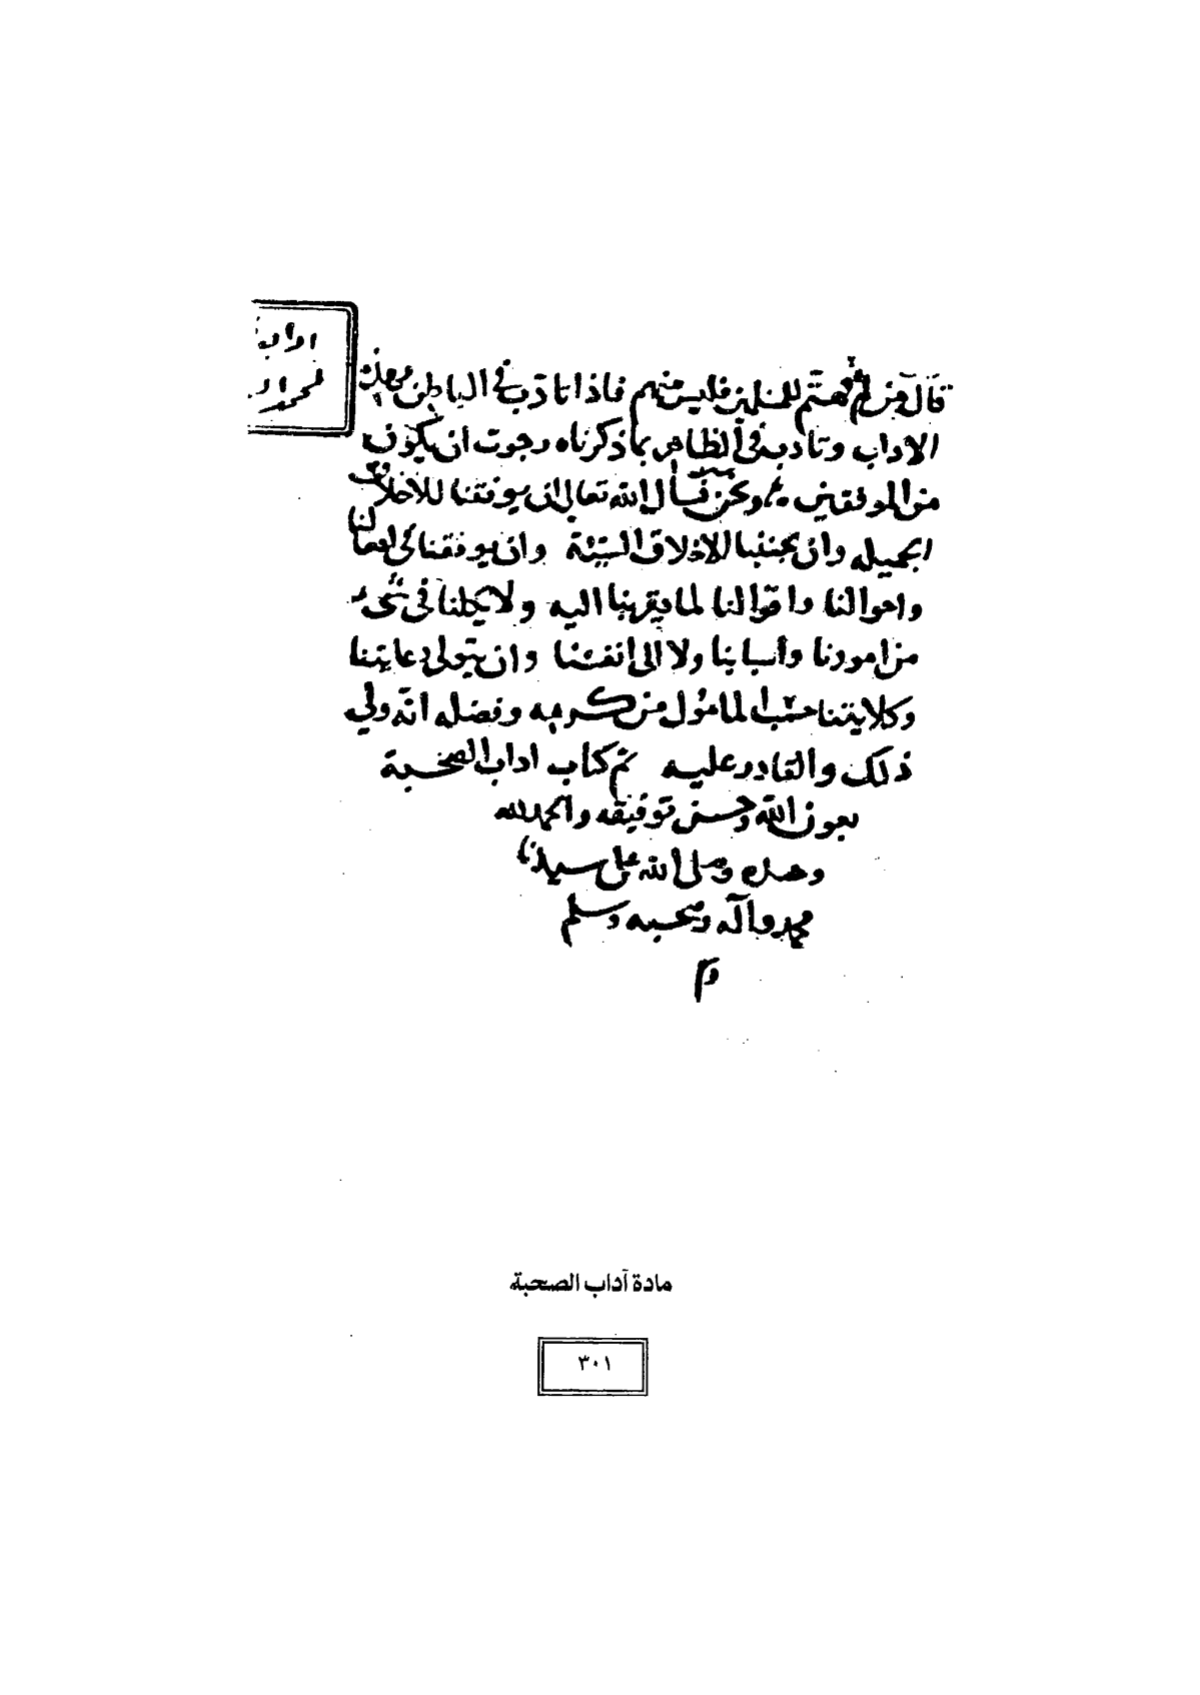 اداب
لمحمد ال
قال من لم يهتم للمسلمين فليس منهم فاذا تادب في الباطن بهذه
الاداب وتادب في الظاهر بما ذكرناه رجوت ان يكون
من الموفقين ونحن نسأل الله تعالى ان يوفقنا للاخلاق
الجميله وان يجنبنا الاخلاق السيئة وان يوفقنا في افعالنا
واحوالنا واقوالنا لما يقربنا اليه ولا يكلنا في شيء
من امورنا وأسبابنا ولا الى انفسنا وان يتولى رعايتنا
وكلايتنا حسب المامؤل من كرمه وفضله انه ولي
ذلك والقادر عليه تم كتاب اداب الصحبة
بعون الله وحسن توفيقه والحمد لله
وحده وصلى الله على سيدنا
محمد وآله وصحبه وسلم
م
مادة آداب الصحبة
٣٠١